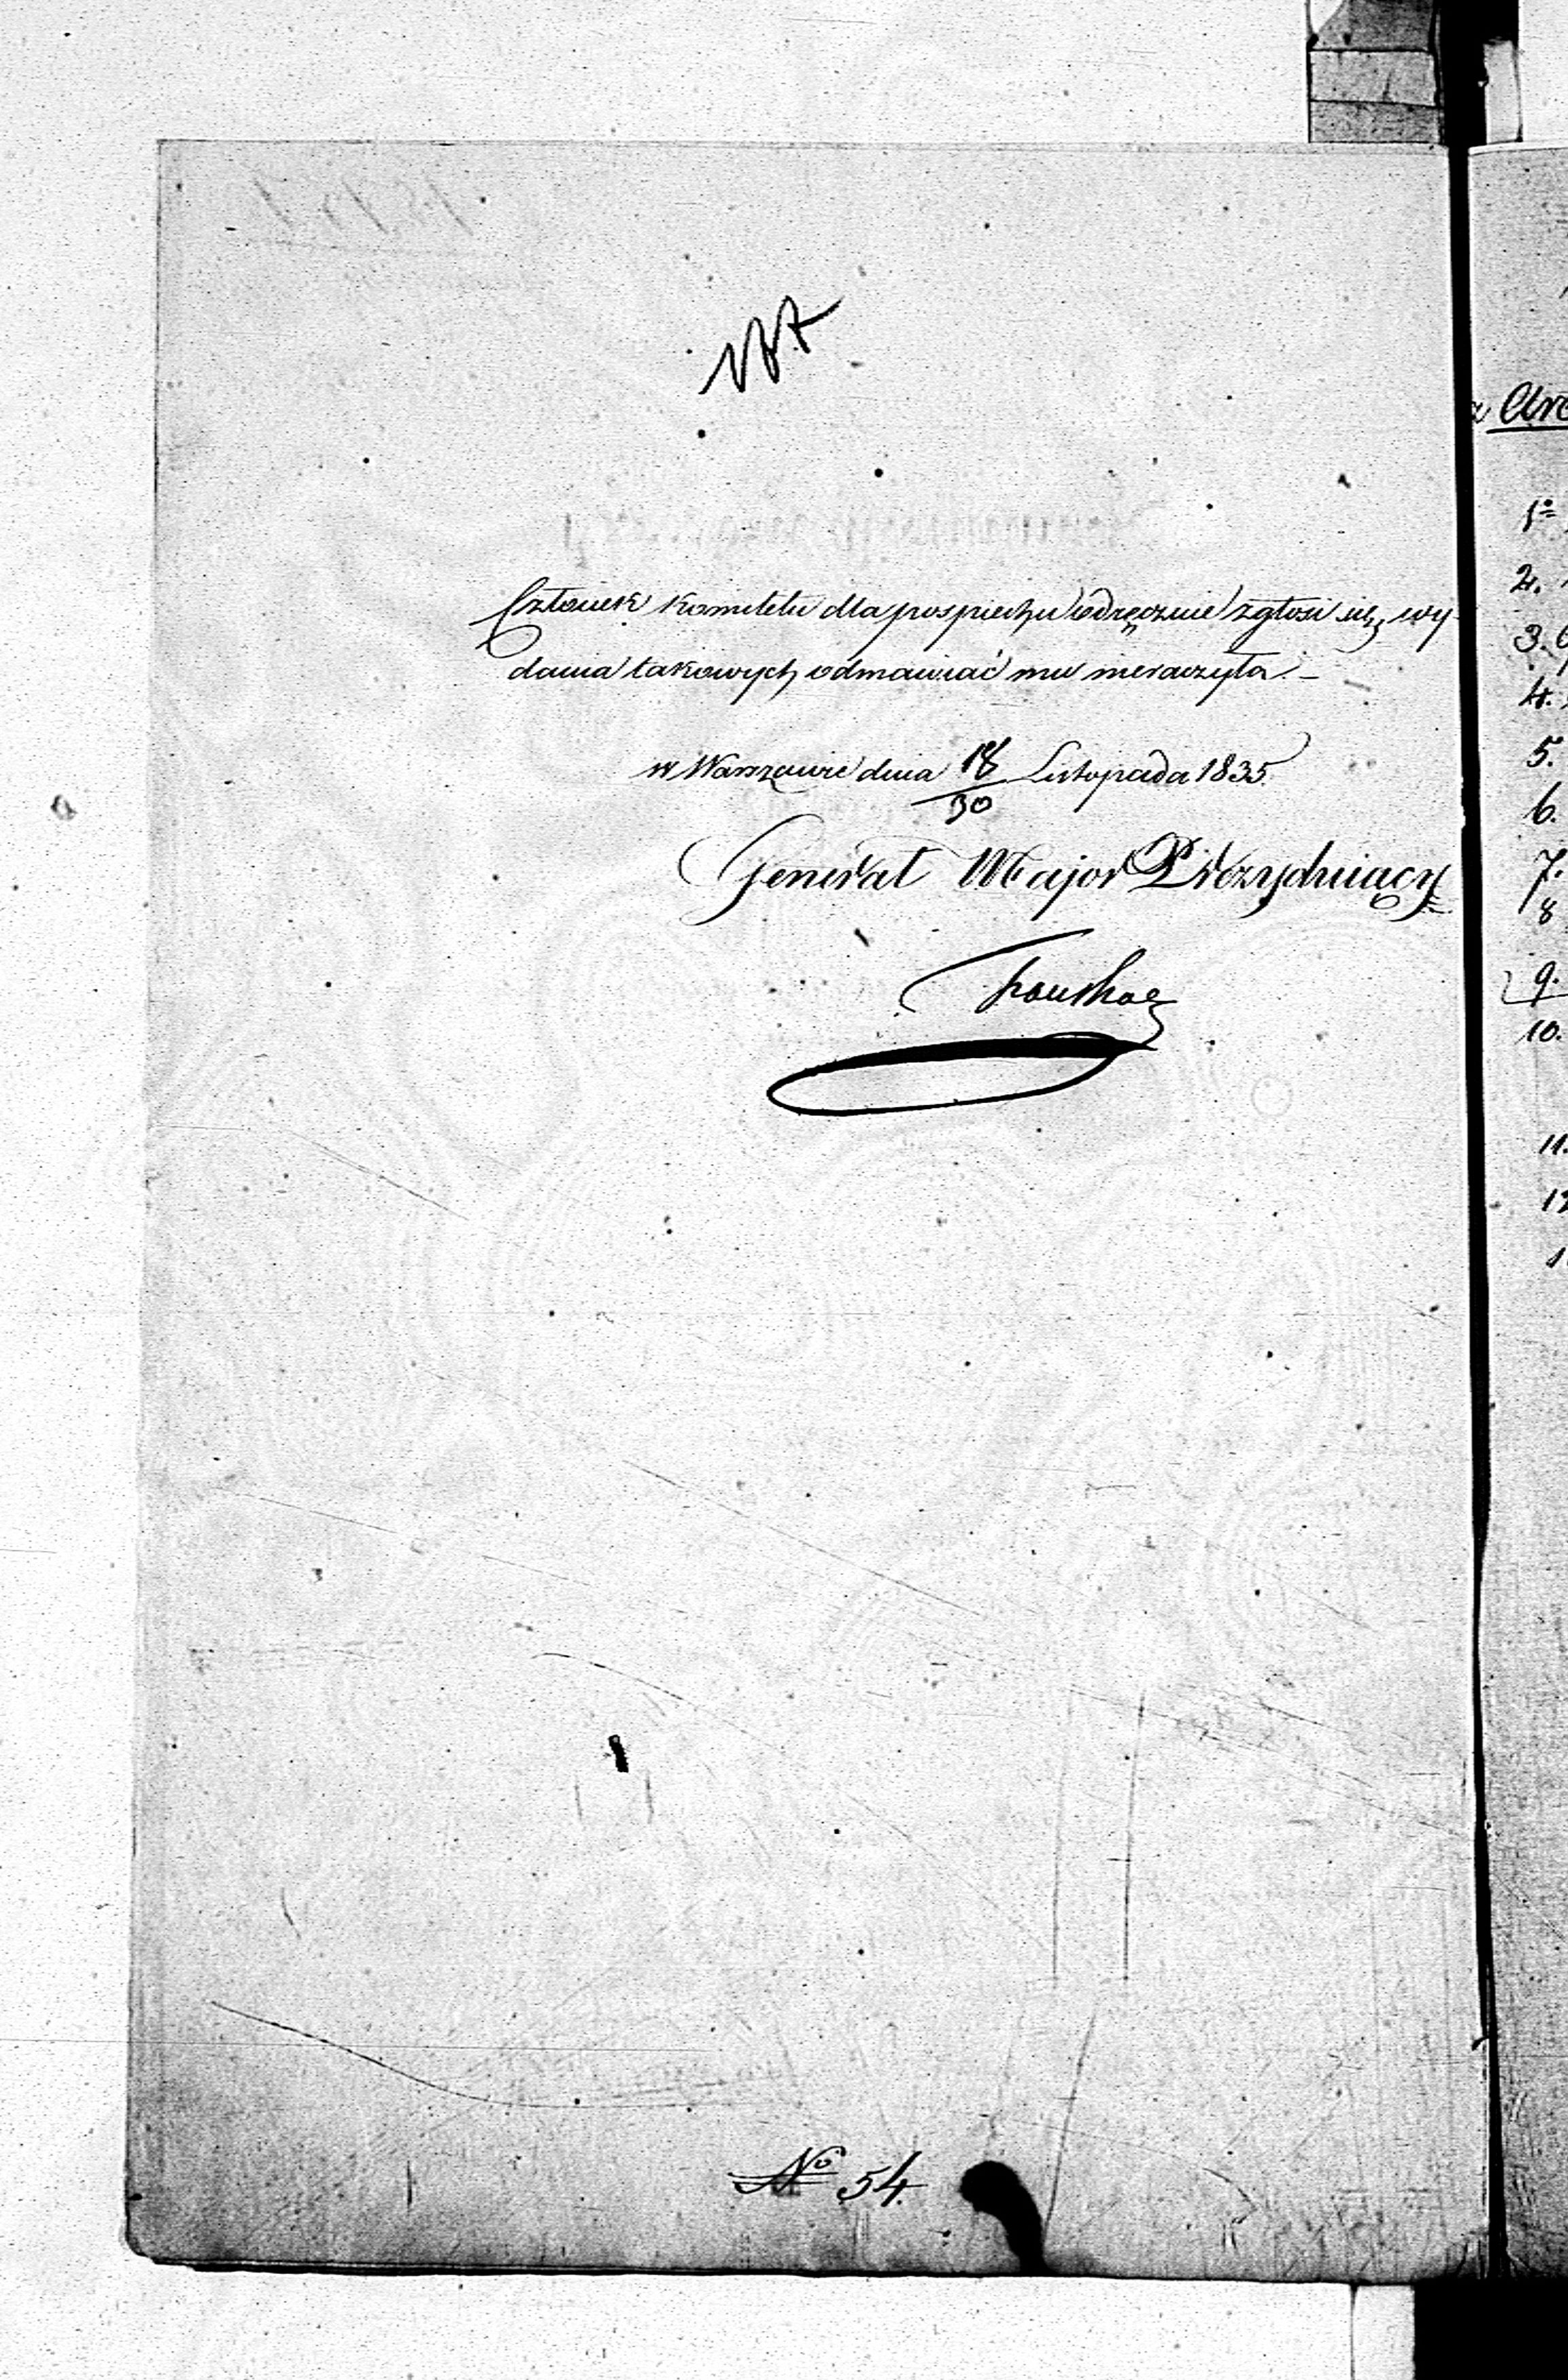 Członek Komitetu dla pospiechu odręcznie zgłosi się, wy-
dania takowych odmawiać mu nieraczyła. –
w Warszawie dnia 18/30 Listopada 1835.
Generał Major Prezyduiący
No 54.
a
1o
2.
3.
4.
5.
6.
7.
8
9.
10.
11.
12